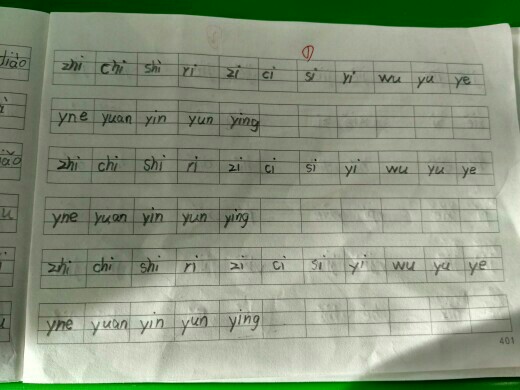 ①
zhi chi shi ri zi ci si yi wu yu ye
yne yuan yin yun ying
zhi chi shi ri zi ci si yi wu yu ye
yne yuan yin yun ying
zhi chi shi ri zi ci si yi wu yu ye
yne yuan yin yun ying
401